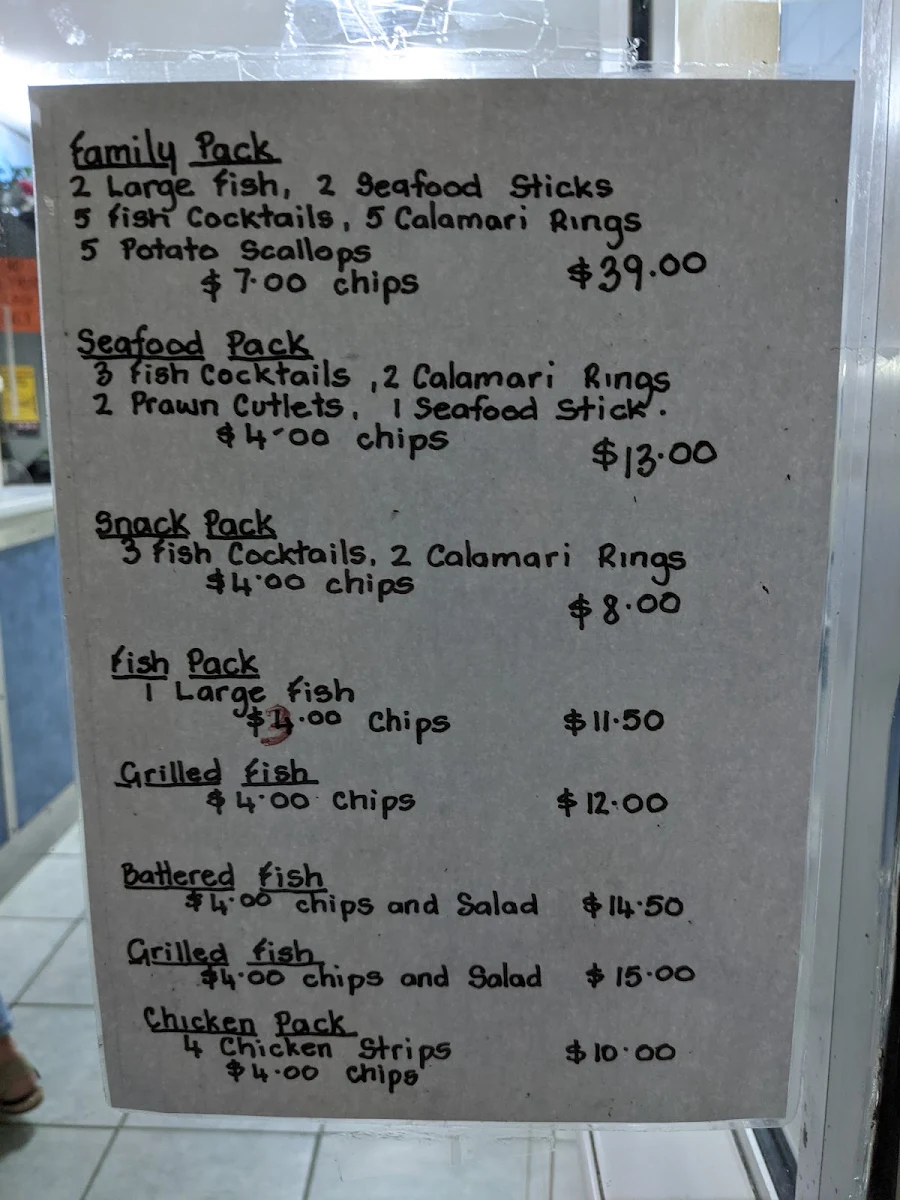 Family Pack
2 Large fish, 2 Seafood Sticks
5 fish Cocktails, 5 Calamari Rings
5 Potato Scallops
$7.00 chips $39.00
Seafood Pack
3 fish Cocktails, 2 Calamari Rings
2 Prawn Cutlets, 1 Seafood Stick.
$4.00 chips
$13.00
Snack Pack
3 fish Cocktails, 2 Calamari Rings
$4.00 chips
$8.00
Fish Pack
1 Large fish
$3.00 Chips $11.50
Grilled fish
$4.00 chips $12.00
Battered fish
$4.00 chips and Salad $14.50
Grilled fish
$4.00 chips and Salad $15.00
Chicken Pack
4 Chicken Strips $10.00
$4.00 chips